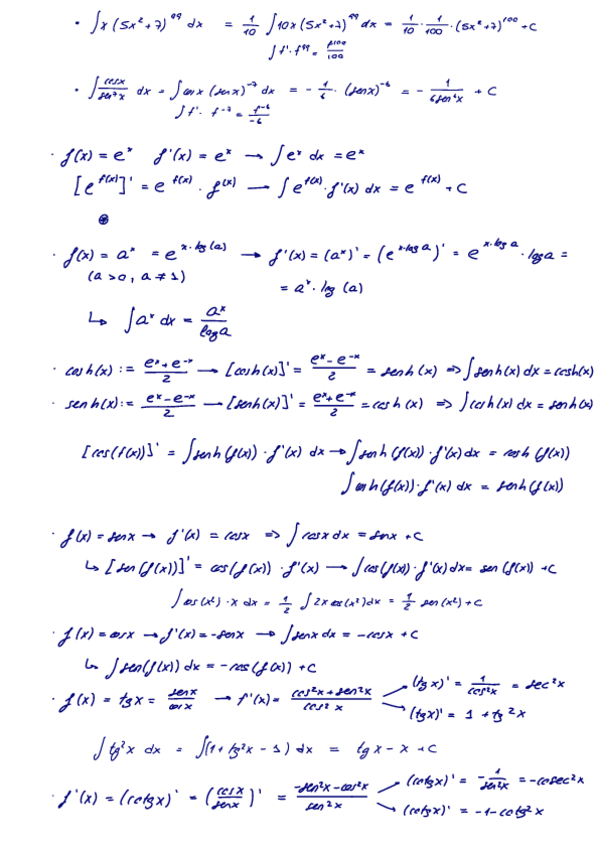 • ∫x (5x²+7)⁹⁹ dx = 1/10 ∫10x (5x²+7)⁹⁹ dx = 1/10 · 1/100 · (5x²+7)¹⁰⁰ + C
∫f'·f⁹⁹ = f¹⁰⁰/100
• ∫cosx/sen⁷x dx = ∫cosx (senx)⁻⁷ dx = -1/6 · (senx)⁻⁶ = - 1/6sen⁶x + C
∫f'· f⁻⁷ = f⁻⁶/-6
· f(x) = eˣ f'(x) = eˣ → ∫eˣ dx = eˣ
[e^f(x)]' = e^f(x) · f(x) → ∫e^f(x) · f'(x) dx = e^f(x) + C
· f(x) = aˣ = e^x·log(a) → f'(x) = (aˣ)' = (e^x·log a)' = e^x·log a · log a =
(a >0, a ≠ 1) = aˣ · log (a)
↳ ∫aˣ dx = aˣ/log a
· cosh(x) := eˣ+e⁻ˣ/2 → [cosh(x)]' = eˣ-e⁻ˣ/2 = senh (x) => ∫senh(x) dx = cosh(x)
· senh(x) := eˣ-e⁻ˣ/2 → [senh(x)]' = eˣ+e⁻ˣ/2 = cosh (x) => ∫cosh(x) dx = senh(x)
[cos(f(x))]' = ∫senh (f(x)) · f'(x) dx → ∫senh (f(x)) · f'(x) dx = cosh (f(x))
∫cosh(f(x))·f'(x) dx = senh(f(x))
· f(x) = senx → f'(x) = cosx => ∫cosx dx = senx + C
↳ [sen(f(x))]' = cos(f(x)) · f'(x) → ∫cos(f(x)) · f'(x) dx = sen (f(x)) + C
∫cos(x²) · x dx = 1/2 ∫2x cos(x²) dx = 1/2 sen(x²) + C
· f(x) = cosx → f'(x) = -senx → ∫senx dx = -cosx + C
↳ ∫sen(f(x)) dx = -cos(f(x)) + C
· f(x) = tgx = senx/cosx → f'(x) = cos²x + sen²x/cos²x (tgx)' = 1/cos²x = sec²x
(tgx)' = 1 + tg²x
∫tg²x dx = ∫(1+tg²x - 1) dx = tgx - x + C
· f'(x) = (cotgx)' = (cosx/senx)' = -sen²x-cos²x/sen²x (cotgx)' = -1/sen²x = -cosec²x
(cotgx)' = -1-cotg²x